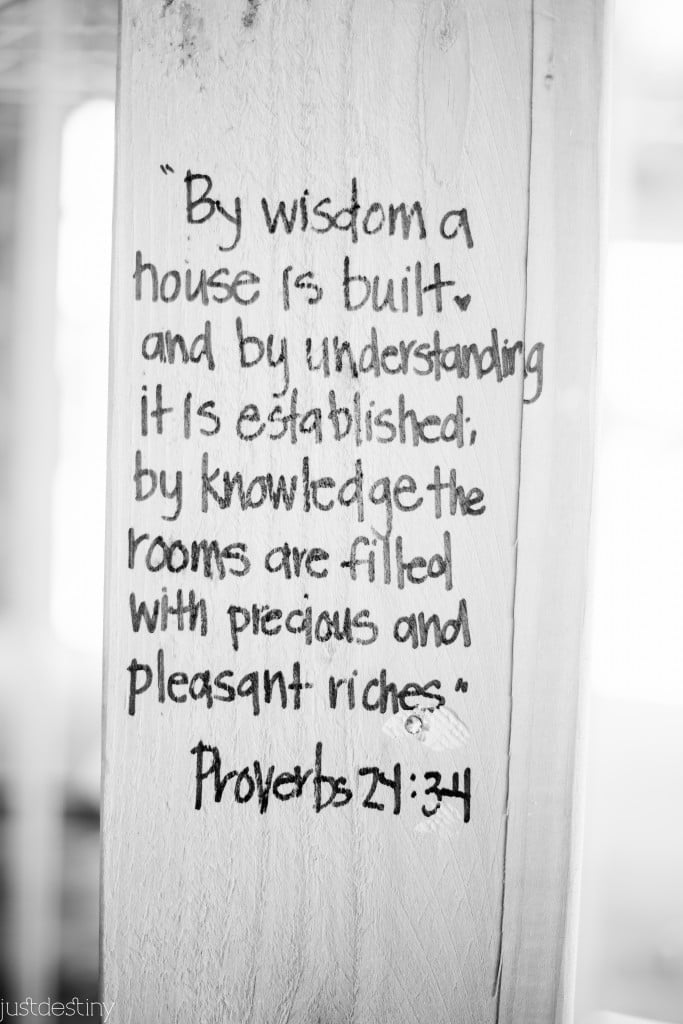 "By wisdom a
house is built♥
and by understanding
it is established;
by knowledge the
rooms are filled
with precious and
pleasant riches"
Proverbs 24:3-4
justdestiny